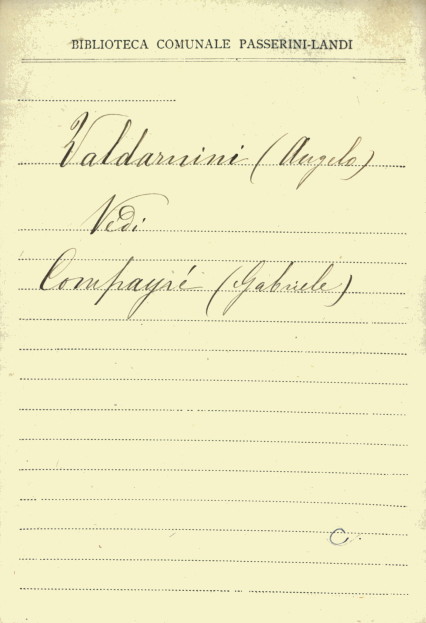 BIBLIOTECA COMUNALE PASSERINI-LANDI
Valdarnini (Angelo)
Vedi
Compayré (Gabriele)
C.